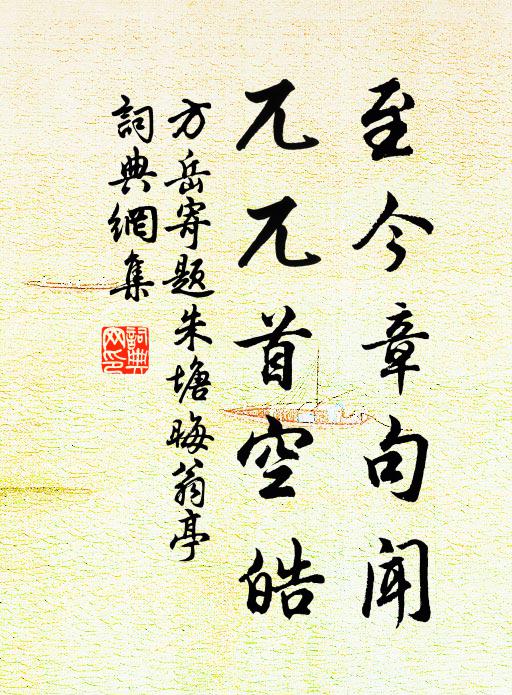 至今章句聞
兀兀首空皓
方岳寄題朱塘晦翁亭
詞典網集
詞典
网印